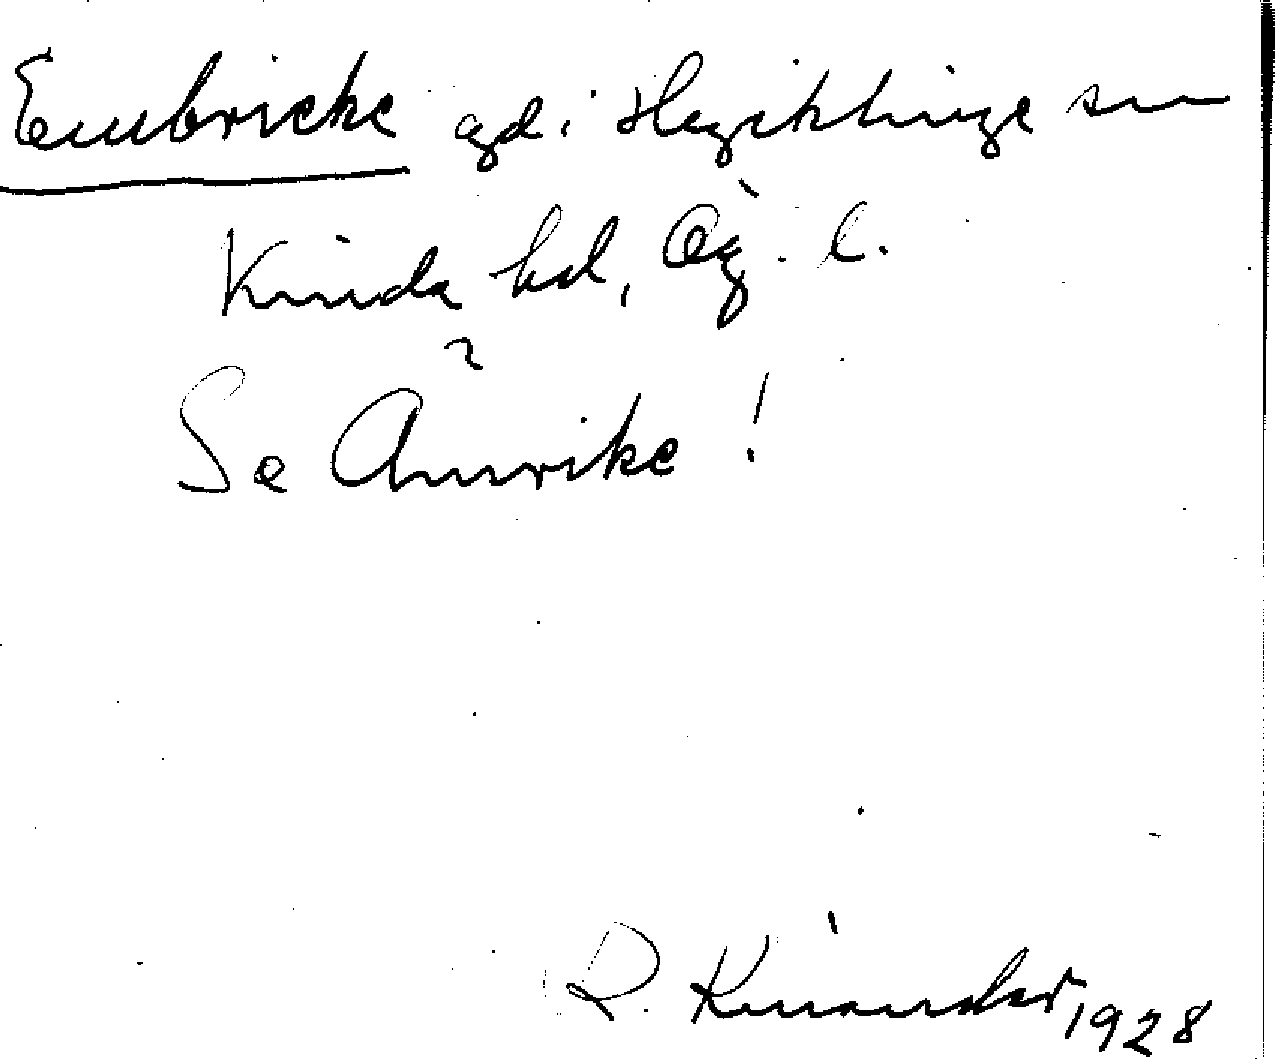 Embricke gd i Hägeklinge sn
Kinda hd, Ög. l.
Se Åmrike!
R. Kinander, 1928